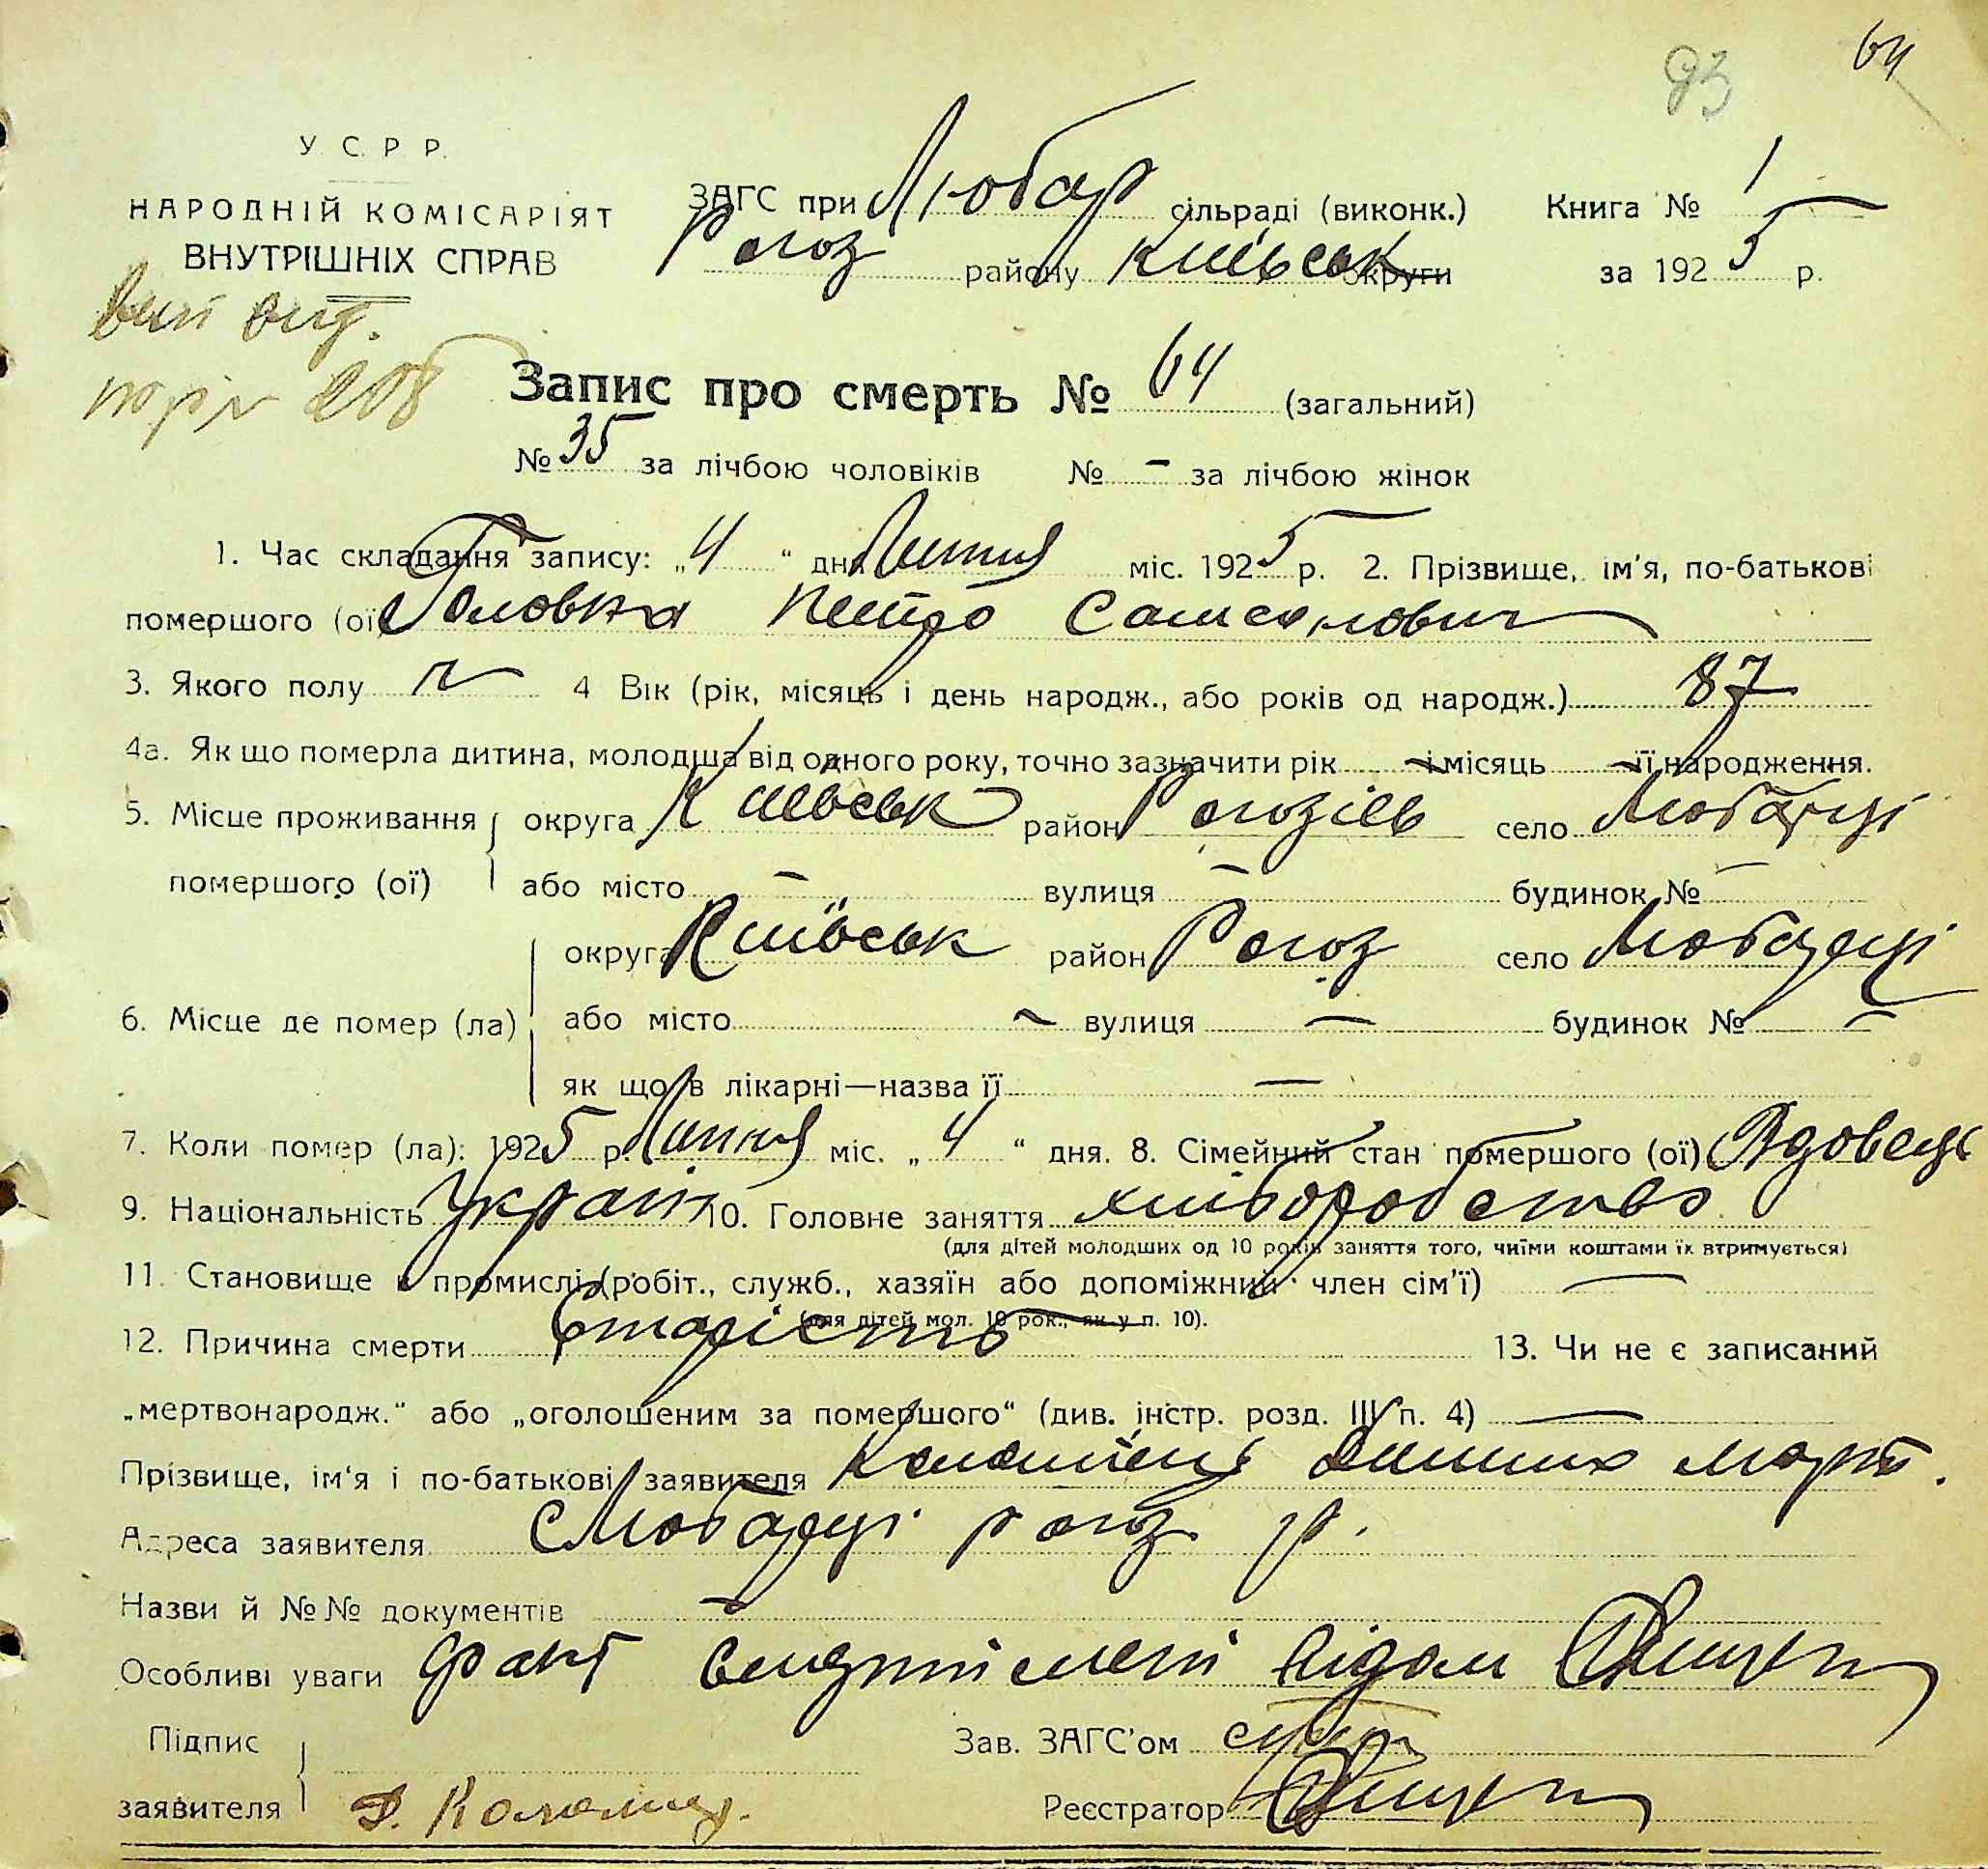 93 64
У. С. Р. Р.
НАРОДНІЙ КОМІСАРІЯТ
ВНУТРІШНІХ СПРАВ
ЗАГС при Любар сільраді (виконк.)
Рогоз району Київськ округи
Книга № 1
за 1925 р.
Запис про смерть № 64 (загальний)
№ 35 за лічбою чоловіків № – за лічбою жінок
1. Час складання запису: „4“ дня Липня міс. 1925 р. 2. Прізвище, ім'я, по-батькові
помершого (ої) Головка Петро Самсонович
3. Якого полу ч 4 Вік (рік, місяць і день народж., або років од народж.) 87
4а. Як що померла дитина, молодша від одного року, точно зазначити рік – і місяць – її народження.
5. Місце проживання округа Київськ район Рогозів село Любарці
помершого (ої) або місто – вулиця – будинок № –
округа Київськ район Рогоз село Любарці
6. Місце де помер (ла) або місто – вулиця – будинок № –
як що в лікарні—назва її –
7. Коли помер (ла): 1925 р. Липня міс. „4“ дня. 8. Сімейний стан помершого (ої) Вдовець
9. Національність Україн 10. Головне заняття хліборобство
(для дітей молодших од 10 років заняття того, чиїми коштами їх втримується)
11. Становище в промислі (робіт., служб., хазяїн або допоміжний член сім'ї) –
(для дітей мол. 10 рок., як у п. 10).
12. Причина смерти Старість 13. Чи не є записаний
„мертвонародж.“ або „оголошеним за помершого“ (див. інстр. розд. III п. 4) –
Прізвище, ім'я і по-батькові заявителя Коломієць март.
Адреса заявителя с Любарці рогоз р.
Назви й №№ документів –
Особливі уваги факт смерти мені відом
Підпис
заявителя Д. Коломієц.
Зав. ЗАГС'ом
Реєстратор